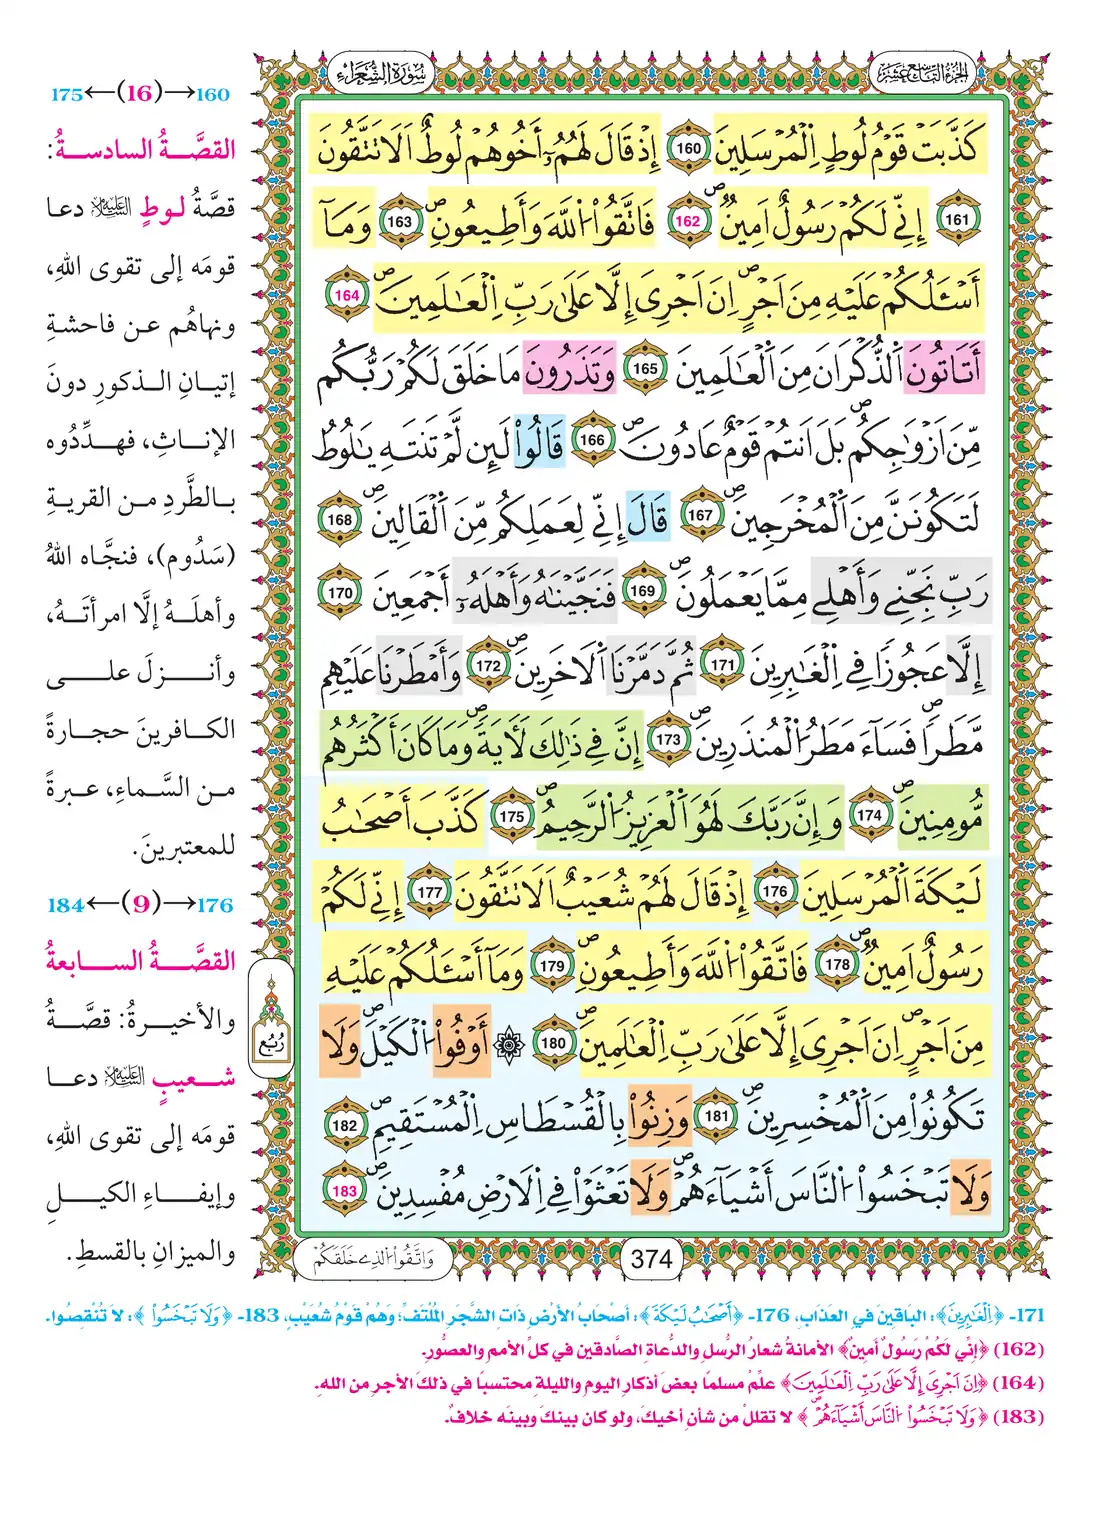 سُورَةُ الشُّعَرَاءِ
الجزء التاسع عشر
كَذَّبَتْ قَوْمُ لُوطٍ اِ۬لْمُرْسَلِينَ 160 إِذْ قَالَ لَهُمُۥٓ أَخُوهُمْ لُوطٌ اَلَا تَتَّقُونَ
161 إِنِّے لَكُمْ رَسُولٌ اَمِينٌ 162 فَاتَّقُوا۟ اُ۬للَّهَ وَأَطِيعُونِ 163 وَمَآ
أَسْـَٔلُكُمْ عَلَيْهِ مِنَ اَجْرٍ اِنَ اَجْرِىَ إِلَّا عَلَىٰ رَبِّ اِ۬لْعَٰلَمِينَ 164
أَتَاتُونَ اَ۬لذُّكْرَانَ مِنَ اَ۬لْعَٰلَمِينَ 165 وَتَذَرُونَ مَا خَلَقَ لَكُمْ رَبُّكُم
مِّنَ اَزْوَٰجِكُم بَلَ اَنتُمْ قَوْمٌ عَادُونَ 166 قَالُوا۟ لَئِن لَّمْ تَنتَهِ يَٰلُوطُ
لَتَكُونَنَّ مِنَ اَ۬لْمُخْرَجِينَ 167 قَالَ إِنِّے لِعَمَلِكُم مِّنَ اَ۬لْقَالِينَ 168
رَبِّ نَجِّنِے وَأَهْلِے مِمَّا يَعْمَلُونَ 169 فَنَجَّيْنَٰهُ وَأَهْلَهُۥٓ أَجْمَعِينَ 170
إِلَّا عَجُوزًا فِے اِ۬لْغَٰبِرِينَ 171 ثُمَّ دَمَّرْنَا اَ۬لَاخَرِينَ 172 وَأَمْطَرْنَا عَلَيْهِم
مَّطَرًا فَسَآءَ مَطَرُ اُ۬لْمُنذَرِينَ 173 إِنَّ فِے ذَٰلِكَ لَأٓيَةً وَمَا كَانَ أَكْثَرُهُم
مُّومِنِينَ 174 وَإِنَّ رَبَّكَ لَهُوَ اَ۬لْعَزِيزُ اُ۬لرَّحِيمُ 175 كَذَّبَ أَصْحَٰبُ
لَيْكَةَ اَ۬لْمُرْسَلِينَ 176 إِذْ قَالَ لَهُمْ شُعَيْبٌ اَلَا تَتَّقُونَ 177 إِنِّے لَكُمْ
رَسُولٌ اَمِينٌ 178 فَاتَّقُوا۟ اُ۬للَّهَ وَأَطِيعُونِ 179 وَمَآ أَسْـَٔلُكُمْ عَلَيْهِ
مِنَ اَجْرٍ اِنَ اَجْرِىَ إِلَّا عَلَىٰ رَبِّ اِ۬لْعَٰلَمِينَ 180 ۞ أَوْفُوا۟ اُ۬لْكَيْلَ وَلَا
تَكُونُوا۟ مِنَ اَ۬لْمُخْسِرِينَ 181 وَزِنُوا۟ بِالْقُسْطَاسِ اِ۬لْمُسْتَقِيمِ 182
وَلَا تَبْخَسُوا۟ اُ۬لنَّاسَ أَشْيَآءَهُمْ وَلَا تَعْثَوْا۟ فِے اِ۬لَارْضِ مُفْسِدِينَ 183
وَاتَّقُوا۟ اُ۬لذِے خَلَقَكُمْ
374
رُبُع
160→(16)←175
القصَّةُ السادسةُ:
قصَّةُ لوطٍ عليه السلام دعا
قومَه إلى تقوى اللهِ،
ونهاهُم عن فاحشةِ
إتيانِ الذكورِ دونَ
الإناثِ، فهدَّدُوه
بالطَّردِ من القريةِ
(سَدُوم)، فنجَّاه اللهُ
وأهلَهُ إلَّا امرأتَهُ،
وأنزلَ على
الكافرينَ حجارةً
من السَّماءِ، عبرةً
للمعتبرينَ.
176→(9)←184
القصَّةُ السابعةُ
والأخيرةُ: قصَّةُ
شعيبٍ عليه السلام دعا
قومَه إلى تقوى اللهِ،
وإيفاءِ الكيلِ
والميزانِ بالقسطِ.
171- ﴿اِ۬لْغَٰبِرِينَ﴾: الباقينَ في العذابِ، 176- ﴿أَصْحَٰبُ لَيْكَةَ﴾: أصحابُ الأرضِ ذاتِ الشَّجَرِ المُلْتَفِّ؛ وَهُمْ قَوْمُ شُعَيْبٍ، 183- ﴿وَلَا تَبْخَسُوا۟﴾: لا تُنْقِصُوا.
(162) ﴿إِنِّي لَكُمْ رَسُولٌ أَمِينٌ﴾ الأمانةُ شعارُ الرُّسلِ والدُّعاةِ الصَّادقين في كلِّ الأممِ والعصُورِ.
(164) ﴿اِنَ اَجْرِىَ إِلَّا عَلَىٰ رَبِّ اِ۬لْعَٰلَمِينَ﴾ علِّمْ مسلمًا بعضَ أذكارِ اليومِ والليلةِ محتسبًا في ذلكَ الأجرَ من اللهِ.
(183) ﴿وَلَا تَبْخَسُوا۟ اُ۬لنَّاسَ أَشْيَآءَهُمْ﴾ لا تقللْ من شأنِ أخيكَ، ولو كان بينكَ وبينَه خلافٌ.